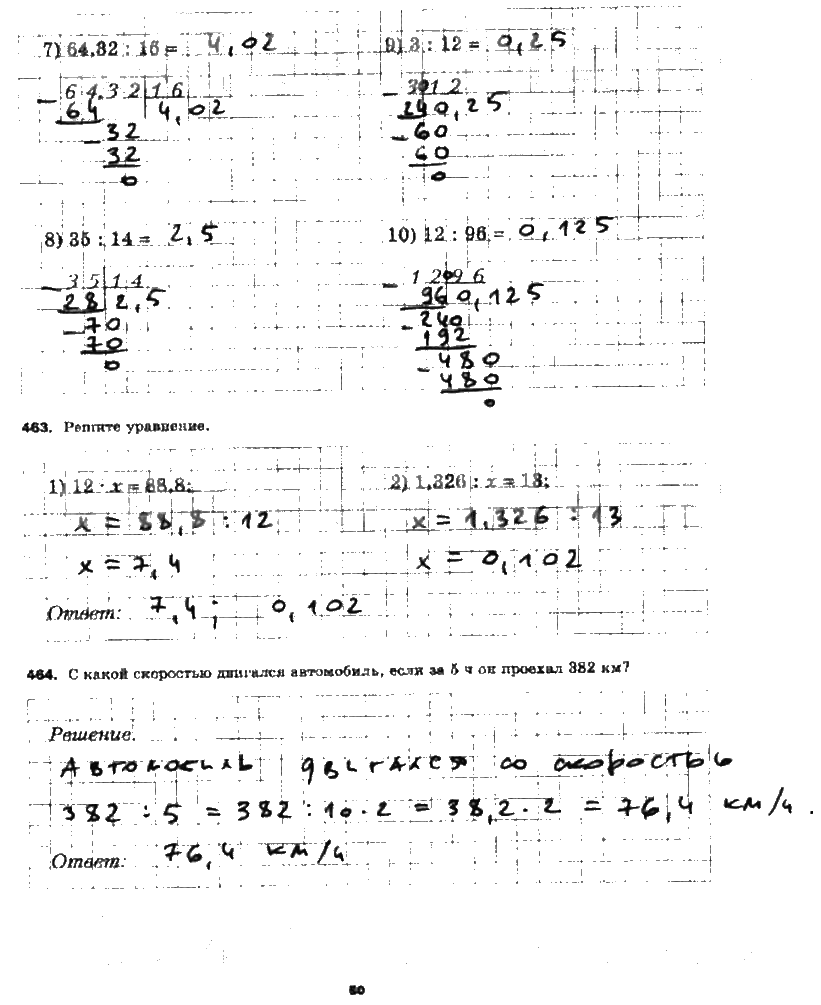 7) 64,32 : 16 = 4,02
64,32 | 16
64 4,02
32
32
0
9) 3 : 12 = 0,25
30 12
24 0,25
60
60
0
8) 35 : 14 = 2,5
35 | 14
28 2,5
70
70
0
10) 12 : 96 = 0,125
120 96
96 0,125
240
192
480
480
0
463. Решите уравнение.
1) 12 · x = 88,8;
x = 88,8 : 12
x = 7,4
2) 1,326 : x = 13;
x = 1,326 : 13
x = 0,102
Ответ: 7,4; 0,102
464. С какой скоростью двигался автомобиль, если за 5 ч он проехал 382 км?
Решение.
Автомобиль двигался со скоростью
382 : 5 = 382 : 10 · 2 = 38,2 · 2 = 76,4 км/ч.
Ответ: 76,4 км/ч
50